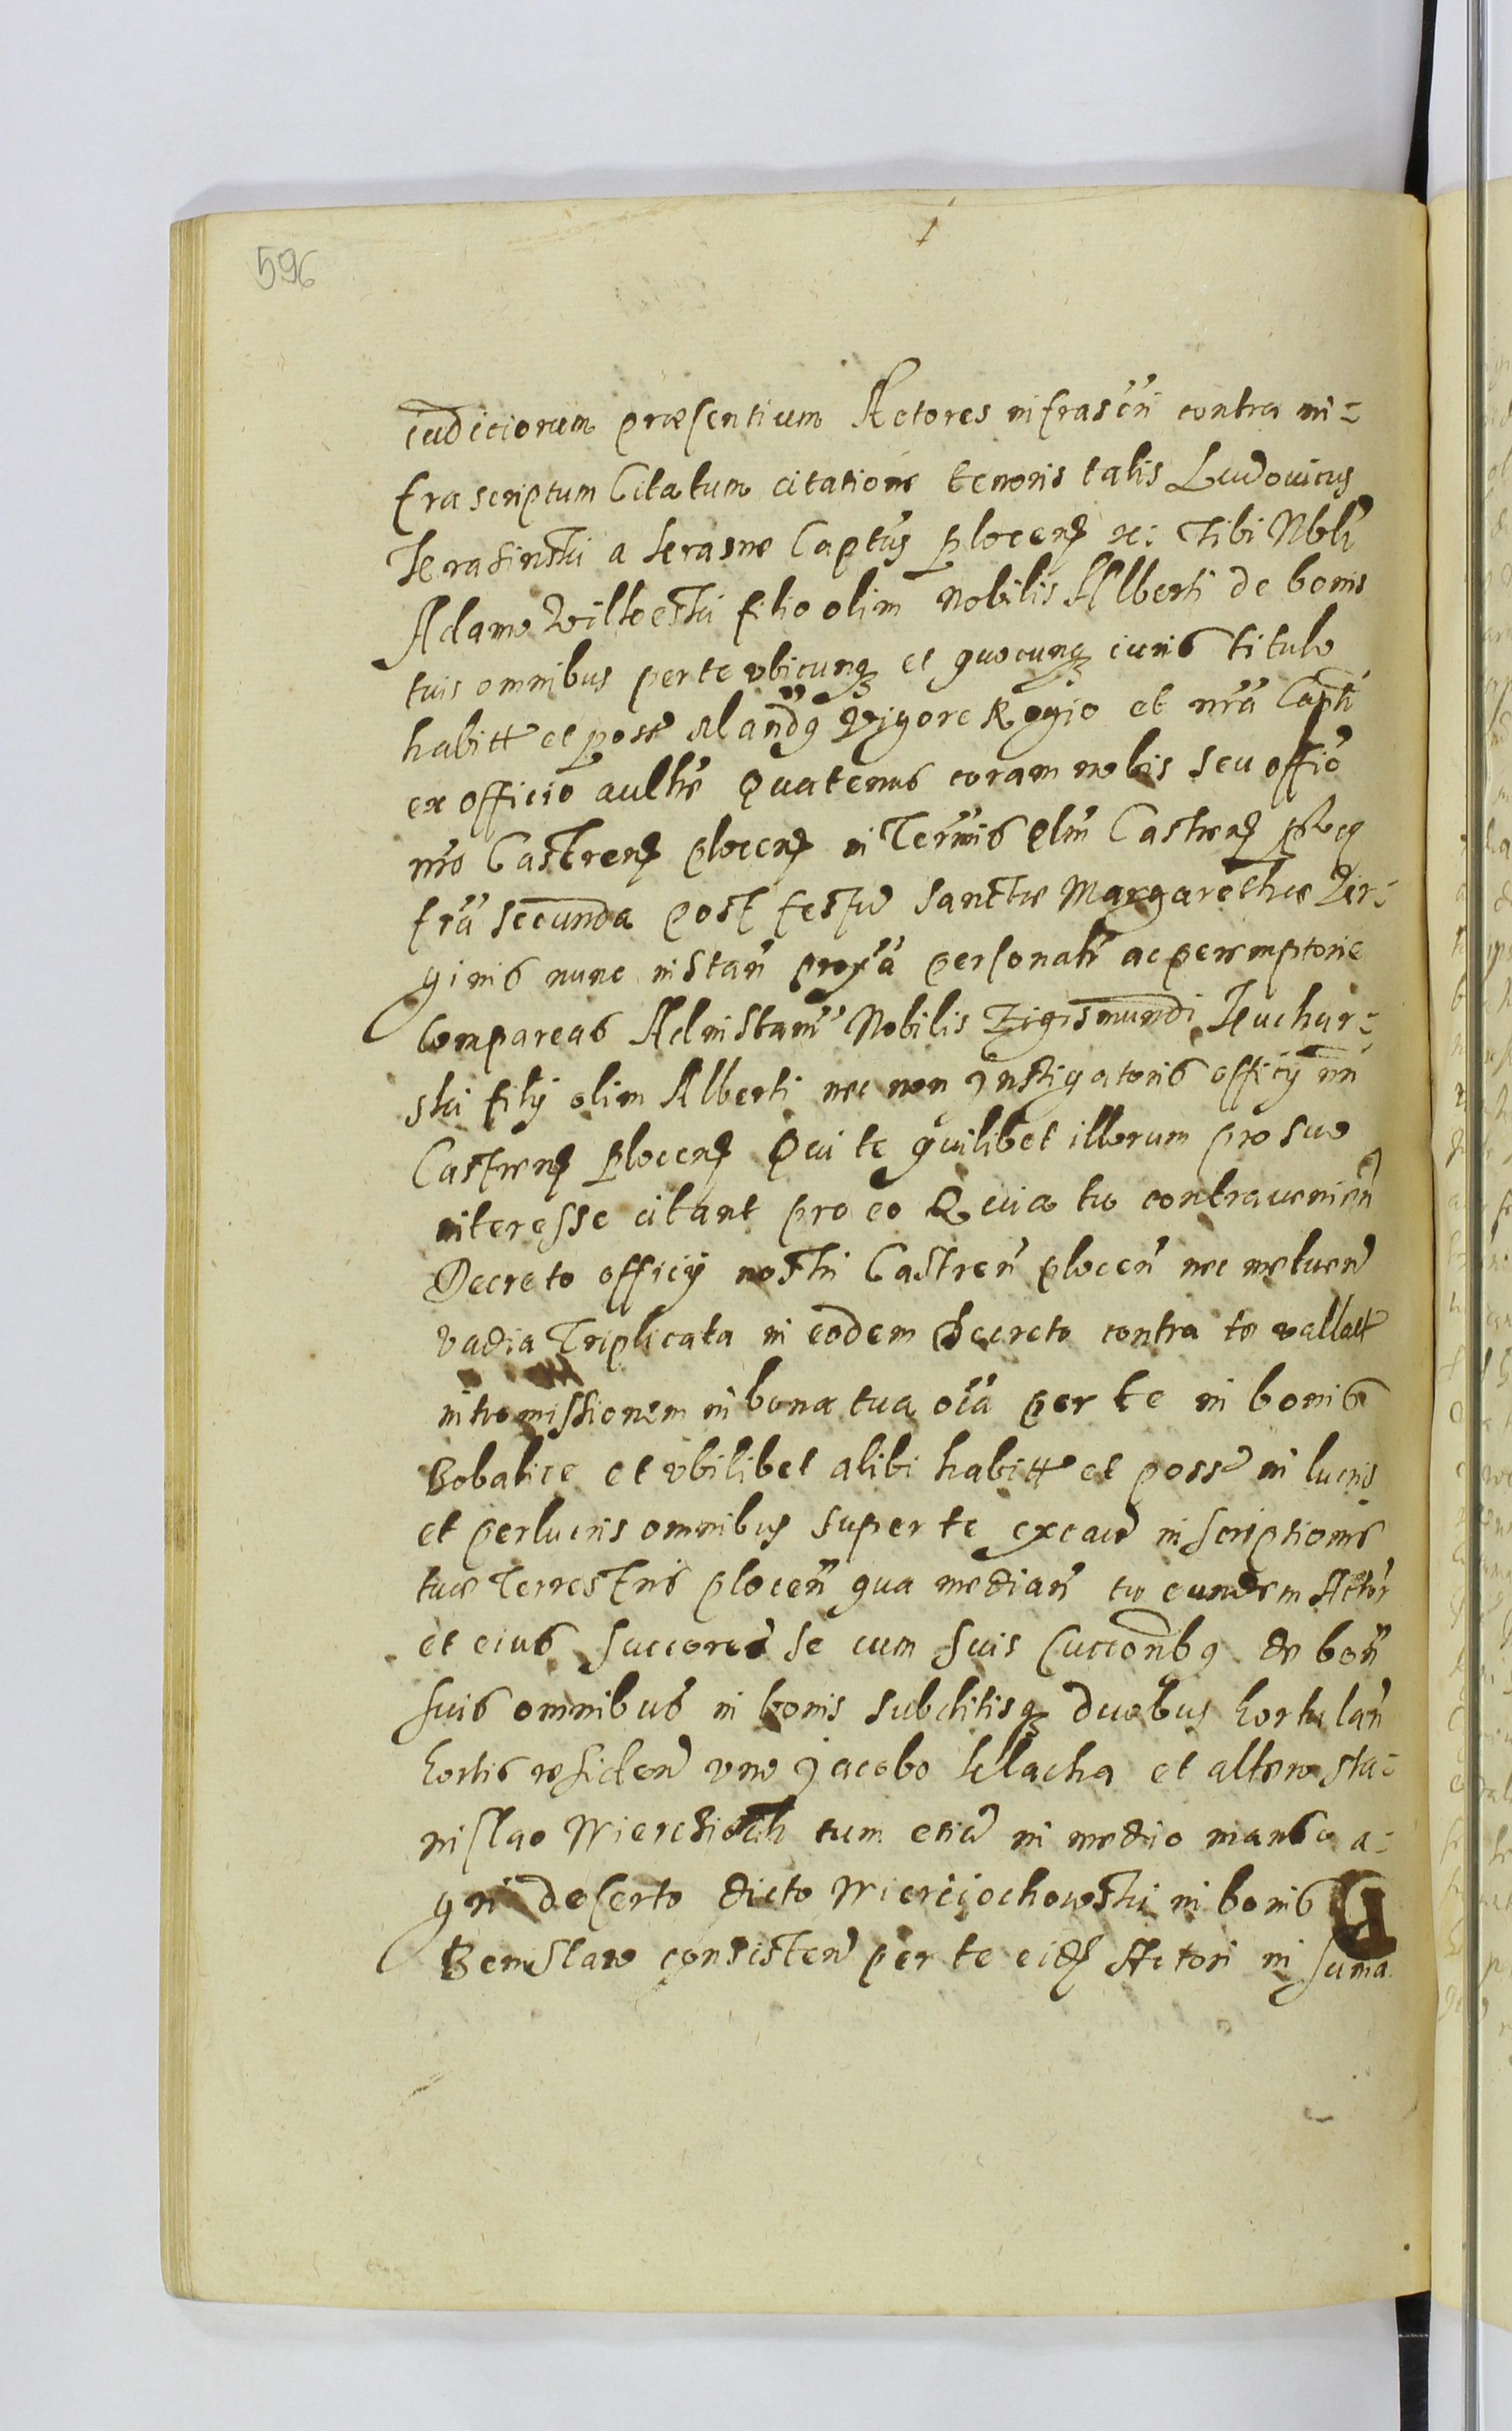 596
iudiciorum præsentium Actores infrascri contra in-
frascriptum Citatum citatione tenoris talis Ludovicus
Krasinski a Krasne Captus plocens etc: Tibi Nbli
Adamo filio olim Nobilis Alberti de bonis
tuis omnibus per te ubicunq et quocunq iuris titulo
habitt et poss Mandg Vigore Regio et nra Capti
ex officio aulhs Quatenus coram nobis seu offio
nro Castrens plocens in Termis qlm Castrens
fra secunda post festu Sanctæ Margarethæ Vir-
ginis nunc instan proxa personalr ac peremptorie
Compareas Ad instam Nobilis Zigismundi Kuchar-
ski filij olim Alberti nec non Instigatoris officij nri
Castrens plocens Qui te quilibet illorum pro suo
interesse citant pro eo Quia tu contravenien
Decreto officij nostri Castren plocen nec metuen
vadia Triplicata in eodem Decreto contra te vallatt
intromissionem in bona tua oia per te in bonis
Bobalice et ubilibet alibi habitt et poss in lucris
et perlucris omnibus super te ex inscriptionis
tuæ Terrestris plocen qua median tu eundem Actor
et eius succores se cum suis succoribq de bon
suis omnibus in bonis subditisq duobus hortulan
hortis residen uno Jacobo Klacha et altero Sta-
nislao Wierchioch tum etia in medio manso a-
gri deserto dicto Wierciochowski in bonis
Bemslaw consisten per te eids Actori in suma